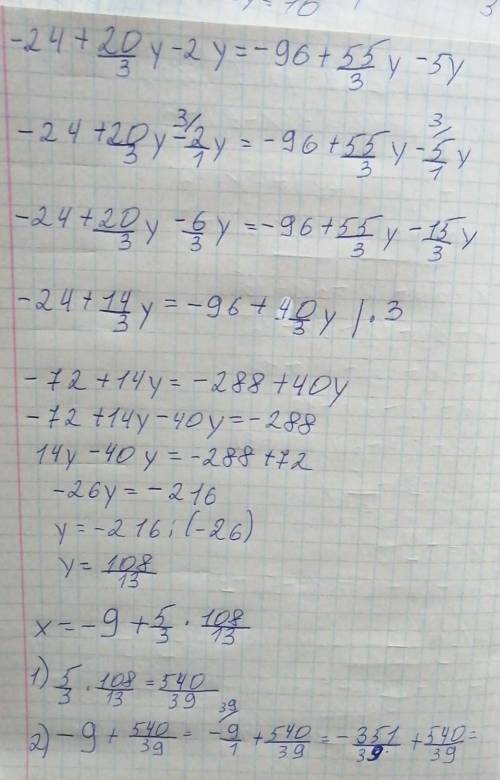 -24 + 20/3 y - 2 y = -96 + 55/3 y - 5y
-24 + 20/3 y - 2/1 3/ y = -96 + 55/3 y - 5/1 3/ y
-24 + 20/3 y - 6/3 y = -96 + 55/3 y - 15/3 y
-24 + 14/3 y = -96 + 40/3 y | · 3
-72 + 14y = -288 + 40y
-72 + 14y - 40y = -288
14y - 40y = -288 + 72
-26y = -216
y = -216 : (-26)
y = 108/13
x = -9 + 5/3 · 108/13
1) 5/3 · 108/13 = 540/39
2) -9 + 540/39 = -9/1 39/ + 540/39 = -351/39 + 540/39 =